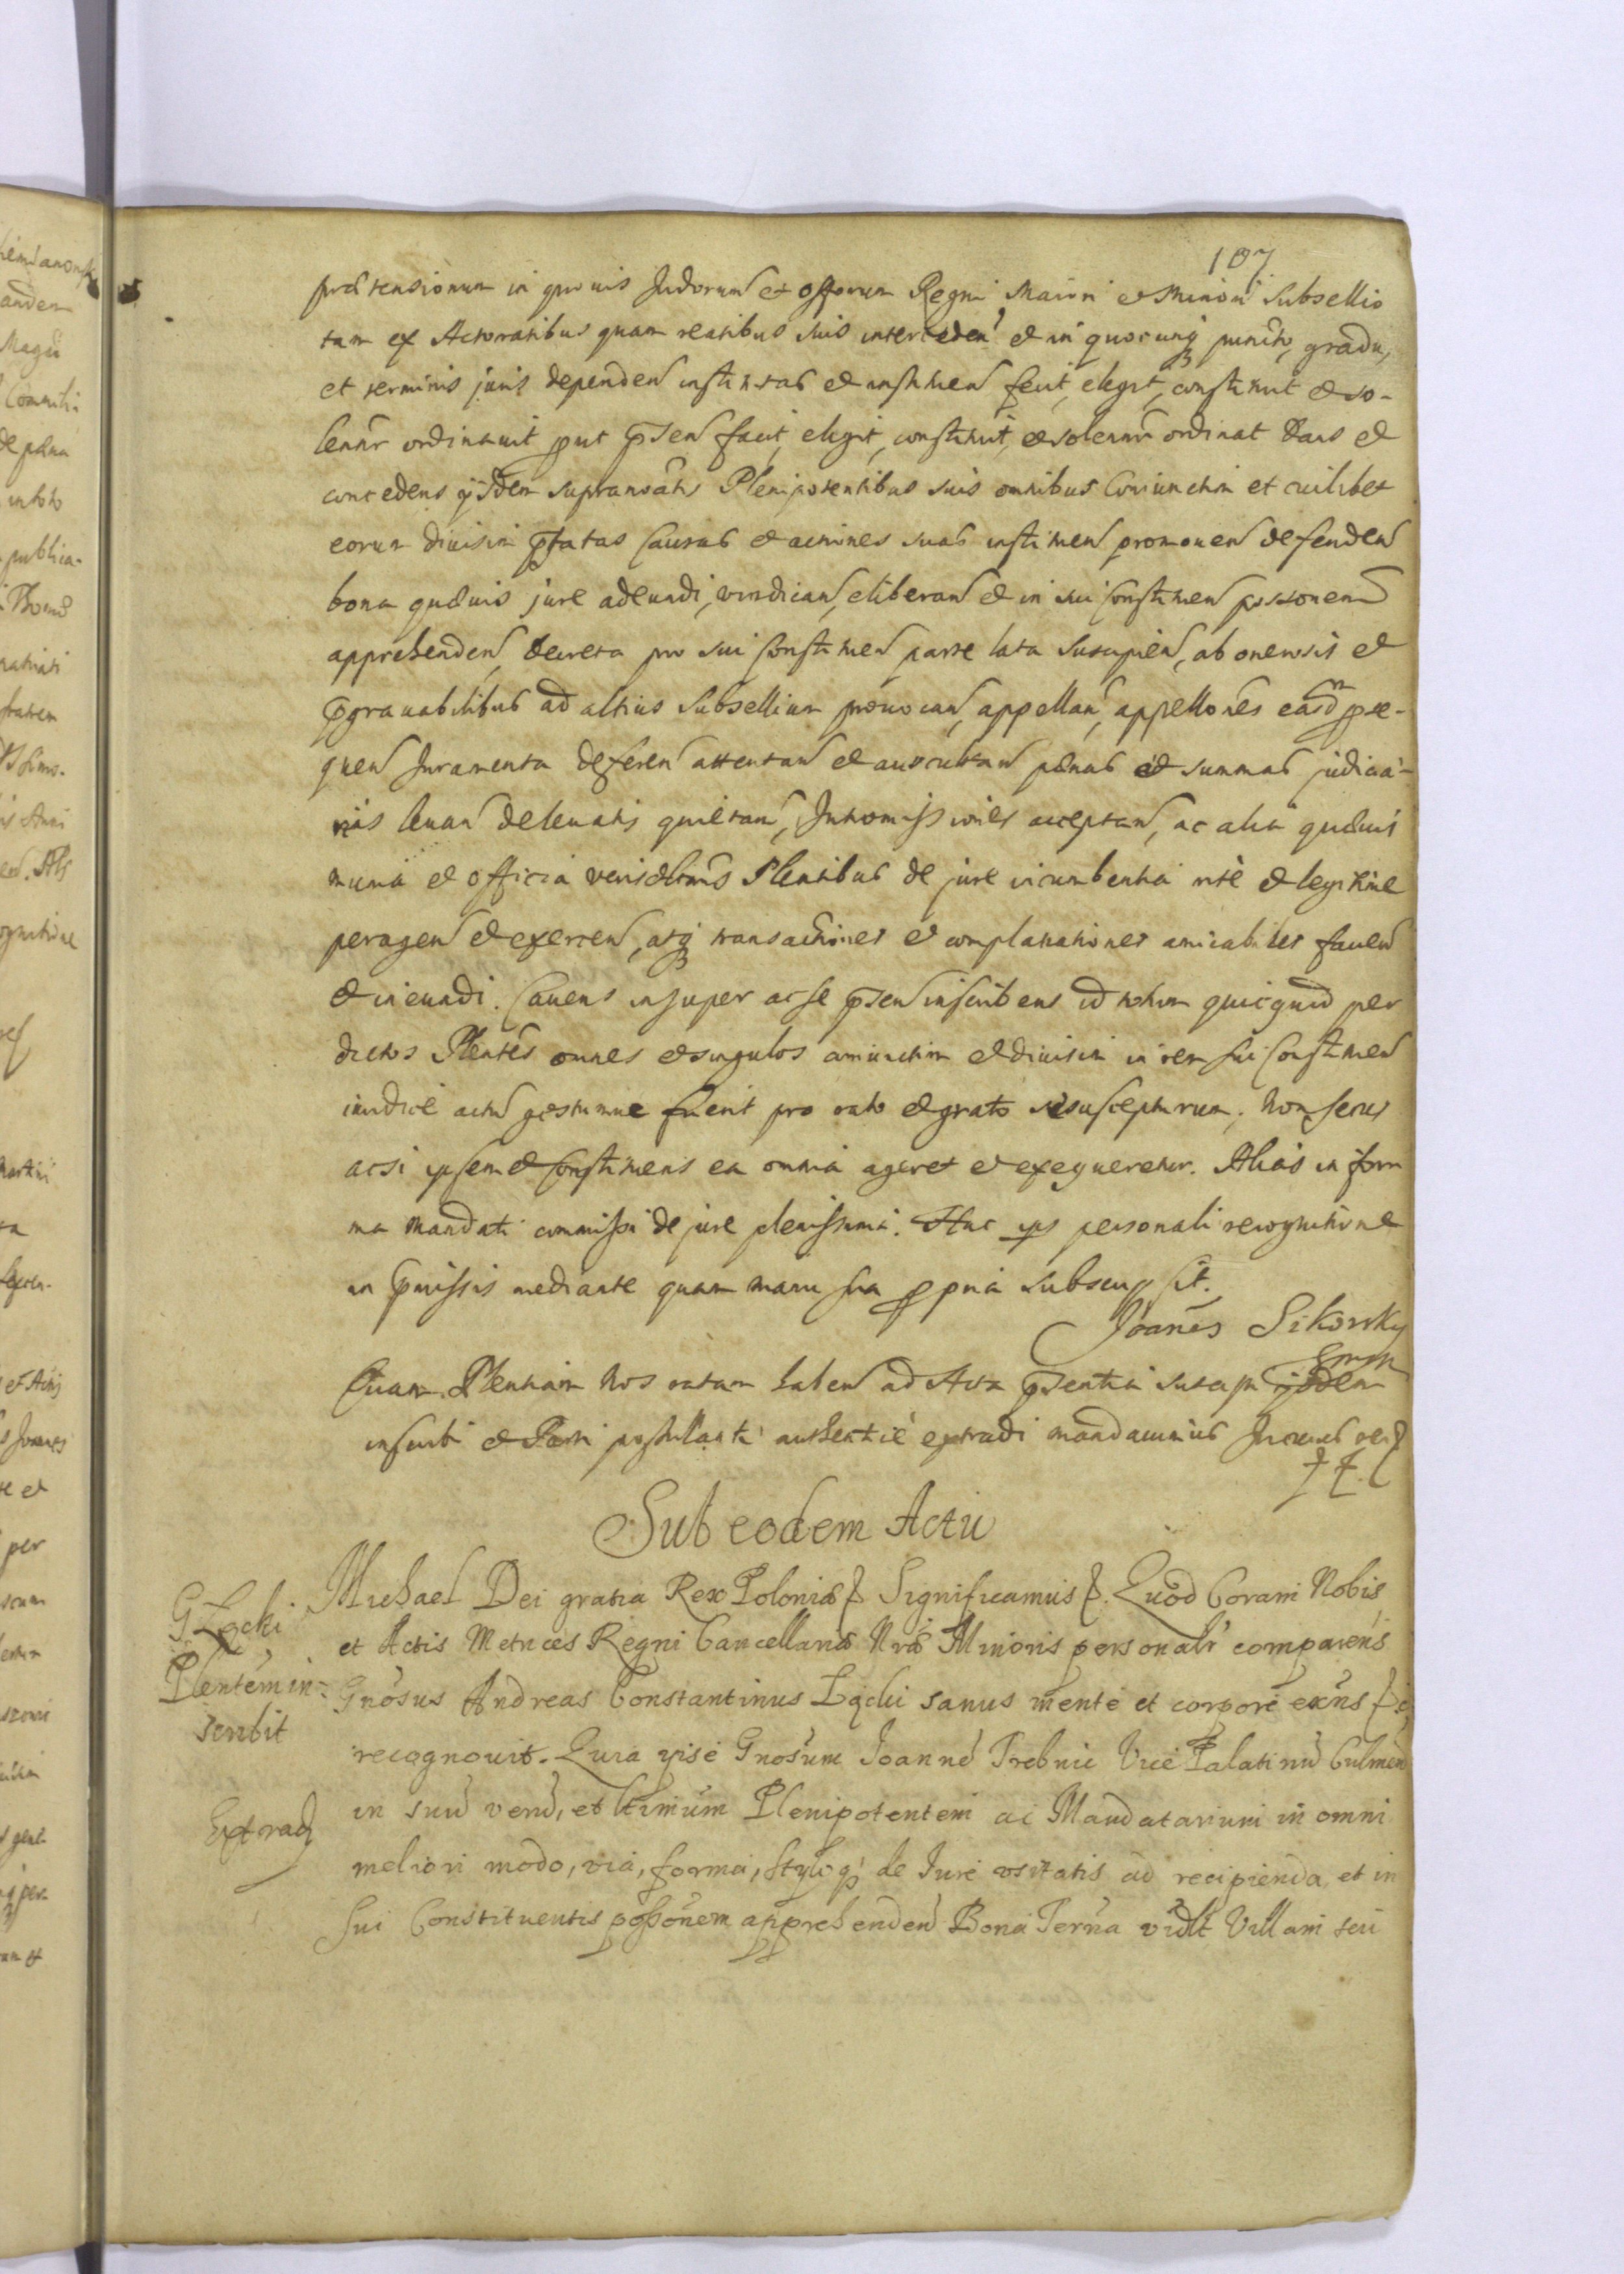 107
prætensionum in quouis Judiorum et offiorum Regni Maiori et Minori Subsellio
tam ex Actoratibus quam reatibus suis interceden et in quocunq puncto, gradu,
et terminis juris dependen institutas et instituen fecit, elegit, constituit et so-
lennr ordinauit put pnsen facit, elegit, constituit, et solennr ordinat Dans et
concedens ijsdem supranoatis Plenipotentibus suis omnibus Coniunctim et cuilibet
eorum diuisim pfatas Causas et actiones suas instituen promouen defenden
bona quæuis jure adeundi, vindican, eliberan et in sui constituen possionem
apprehenden, decreta pro sui Constituen parte lata suscipien, ab onerosis et
pgrauabilibus ad altius Subsellium prouocan, appellan, appellones easdm pse-
quen Juramenta deferen attentan et auscultan pænas et summas judicia-
rias leuan de leuatis quietan, Intromissiones acceptan, ac alia quæuis
munia et officia veris Plentibus de jure incumbentia rite et legitime
peragen et exercen, atq transactiones et complanationes amicabiles facien
et ineundi. Cauens insuper ac se pnsen inscribens id totum quicquid per
dictos Plentes omnes et singulos coniunctim et diuisim in rem sui Constituen
iuridice actum gestumue fuerit pro rato et grato se suscepturum, non secus
acsi ipsemet Constituens ea omnia ageret et exequeretur. Alias in for
ma mandati commissi de jure plenissima. Hac ips personali recognitione
in pmissis mediante quam manu sua ppria subscripsit.
Joanes Sikorsky
mm
Quam Plentiam nos ratam haben ad Acta pnsentia suscipi
inscribi et Parti postulanti authentice extradi mandauimus In cuius rei
Sub eodem Actu
Michael Dei gratia Rex Poloniæ Significamus. Quod Coram Nobis
et Actis Metrices Regni Cancellariæ Nræ Minoris personalr comparens
Gnosus Andreas Constantinus Łącki sanus mente et corpore exns
recognouit. Quia ipse Gnosum Joannem Trebnic Vice Palatinu Culmen
in suu veru, et ltimum Plenipotentem ac Mandatarium in omni
meliori modo, via, forma, styloq de Jure vsitatis ad recipienda et in
sui Constituentis possonem apprehenden Bona Terrna vidlt Villam seu
G Łącki
Plentem in-
scribit
Extrad